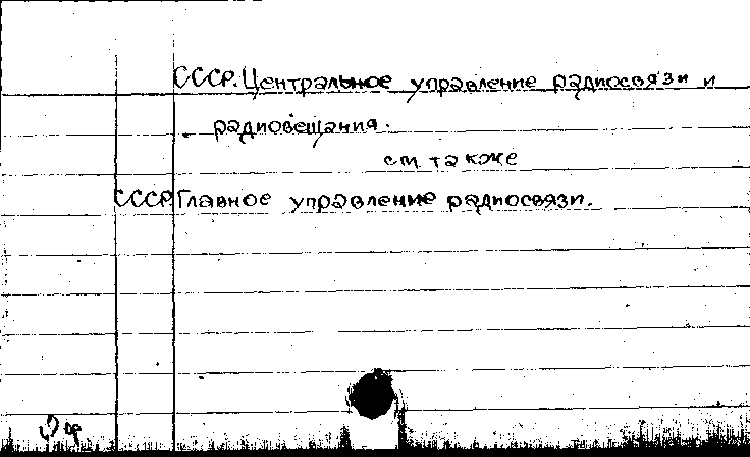 СССР. Центральное управление радиосвязи и
радиовещания.
см. также
СССР Главное управление радиосвязи.